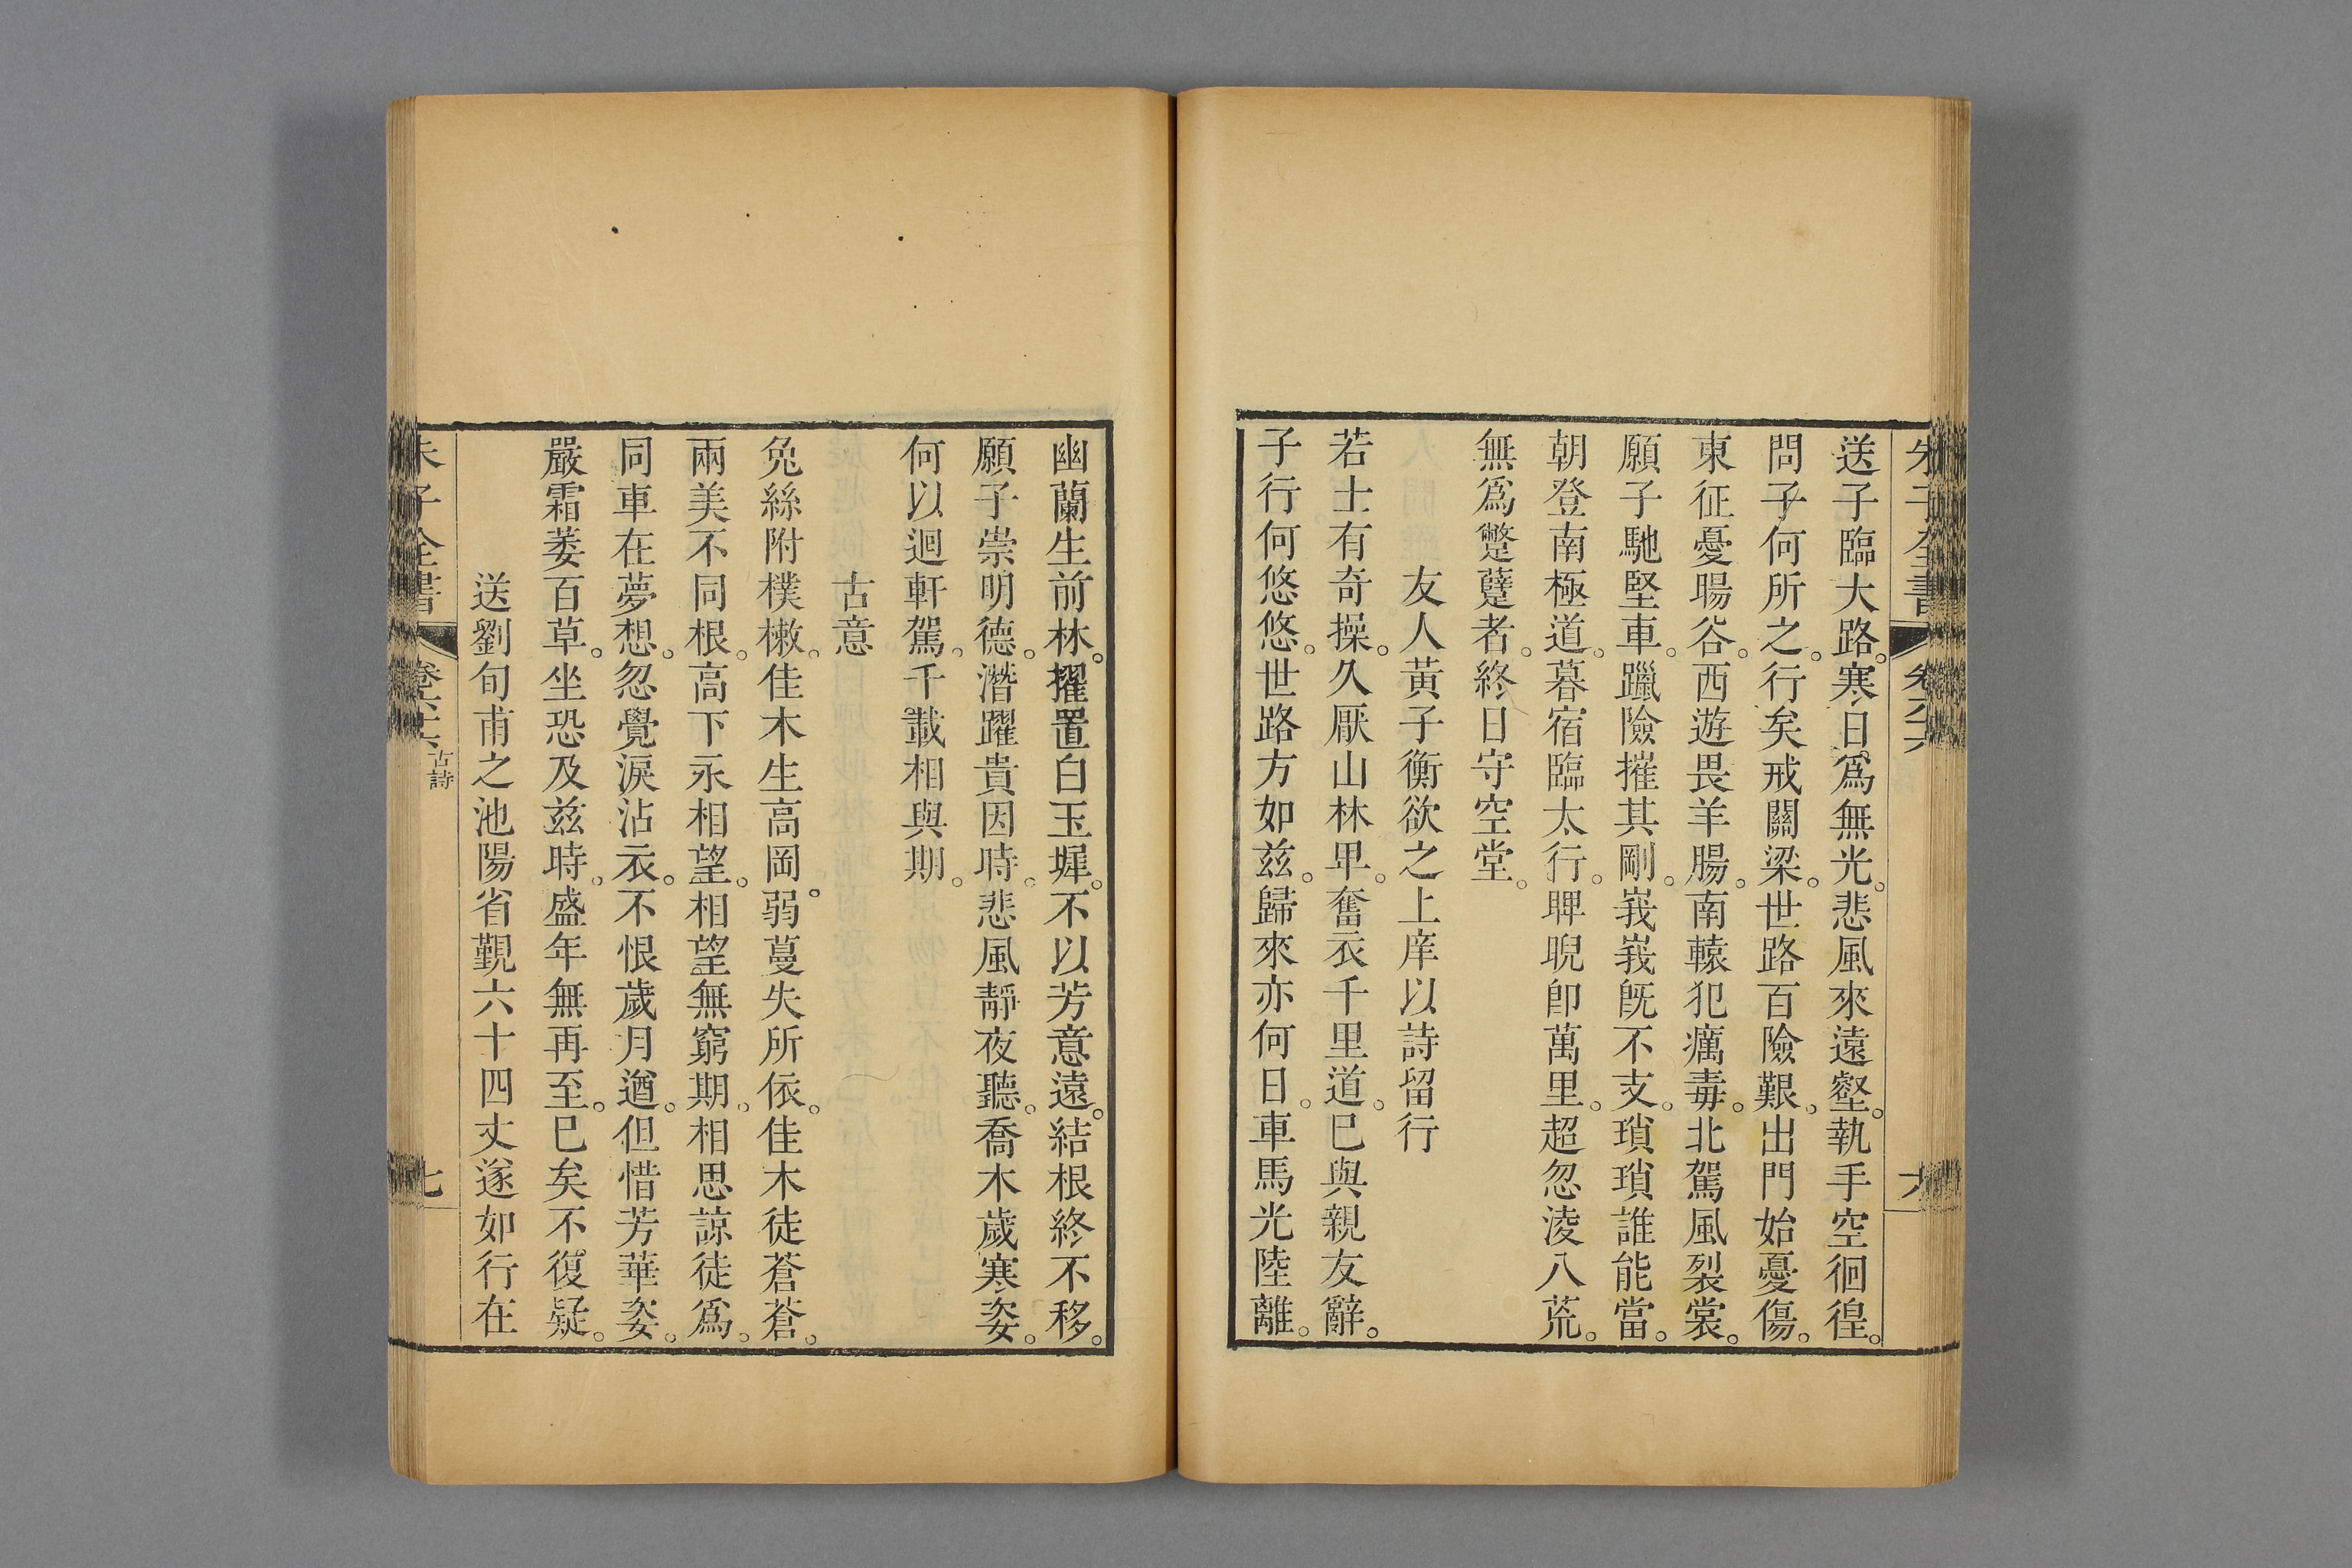 朱子全書 卷六十六 六
送子臨大路。寒日爲無光。悲風來遠壑。執手空徊徨。
問子何所之。行矣戒關梁。世路百險艱。出門始憂傷。
東征憂暘谷。西遊畏羊腸。南轅犯癘毒。北駕風裂裳。
願子馳堅車。躐險摧其剛。峩峩旣不支。瑣瑣誰能當。
朝登南極道。暮宿臨太行。睥睨卽萬里。超忽淩八荒。
無爲蹩躠者。終日守空堂。
友人黃子衡欲之上庠以詩留行
若士有奇操。久厭山林卑。奮衣千里道。已與親友辭。
子行何悠悠。世路方如兹。歸來亦何日。車馬光陸離。
幽蘭生前林。擢置白玉墀。不以芳意遠。結根終不移。
願子崇明德。潛躍貴因時。悲風靜夜聽。喬木歲寒姿。
何以迴軒駕。千載相與期。
古意
兔絲附樸樕。佳木生高岡。弱蔓失所依。佳木徒蒼蒼。
兩美不同根。高下永相望。相望無窮期。相思諒徒爲。
同車在夢想。忽覺淚沾衣。不恨歲月遒。但惜芳華姿。
嚴霜萎百草。坐恐及兹時。盛年無再至。已矣不復疑。
送劉旬甫之池陽省覲六十四丈遂如行在
朱子全書 卷六十六 古詩 七